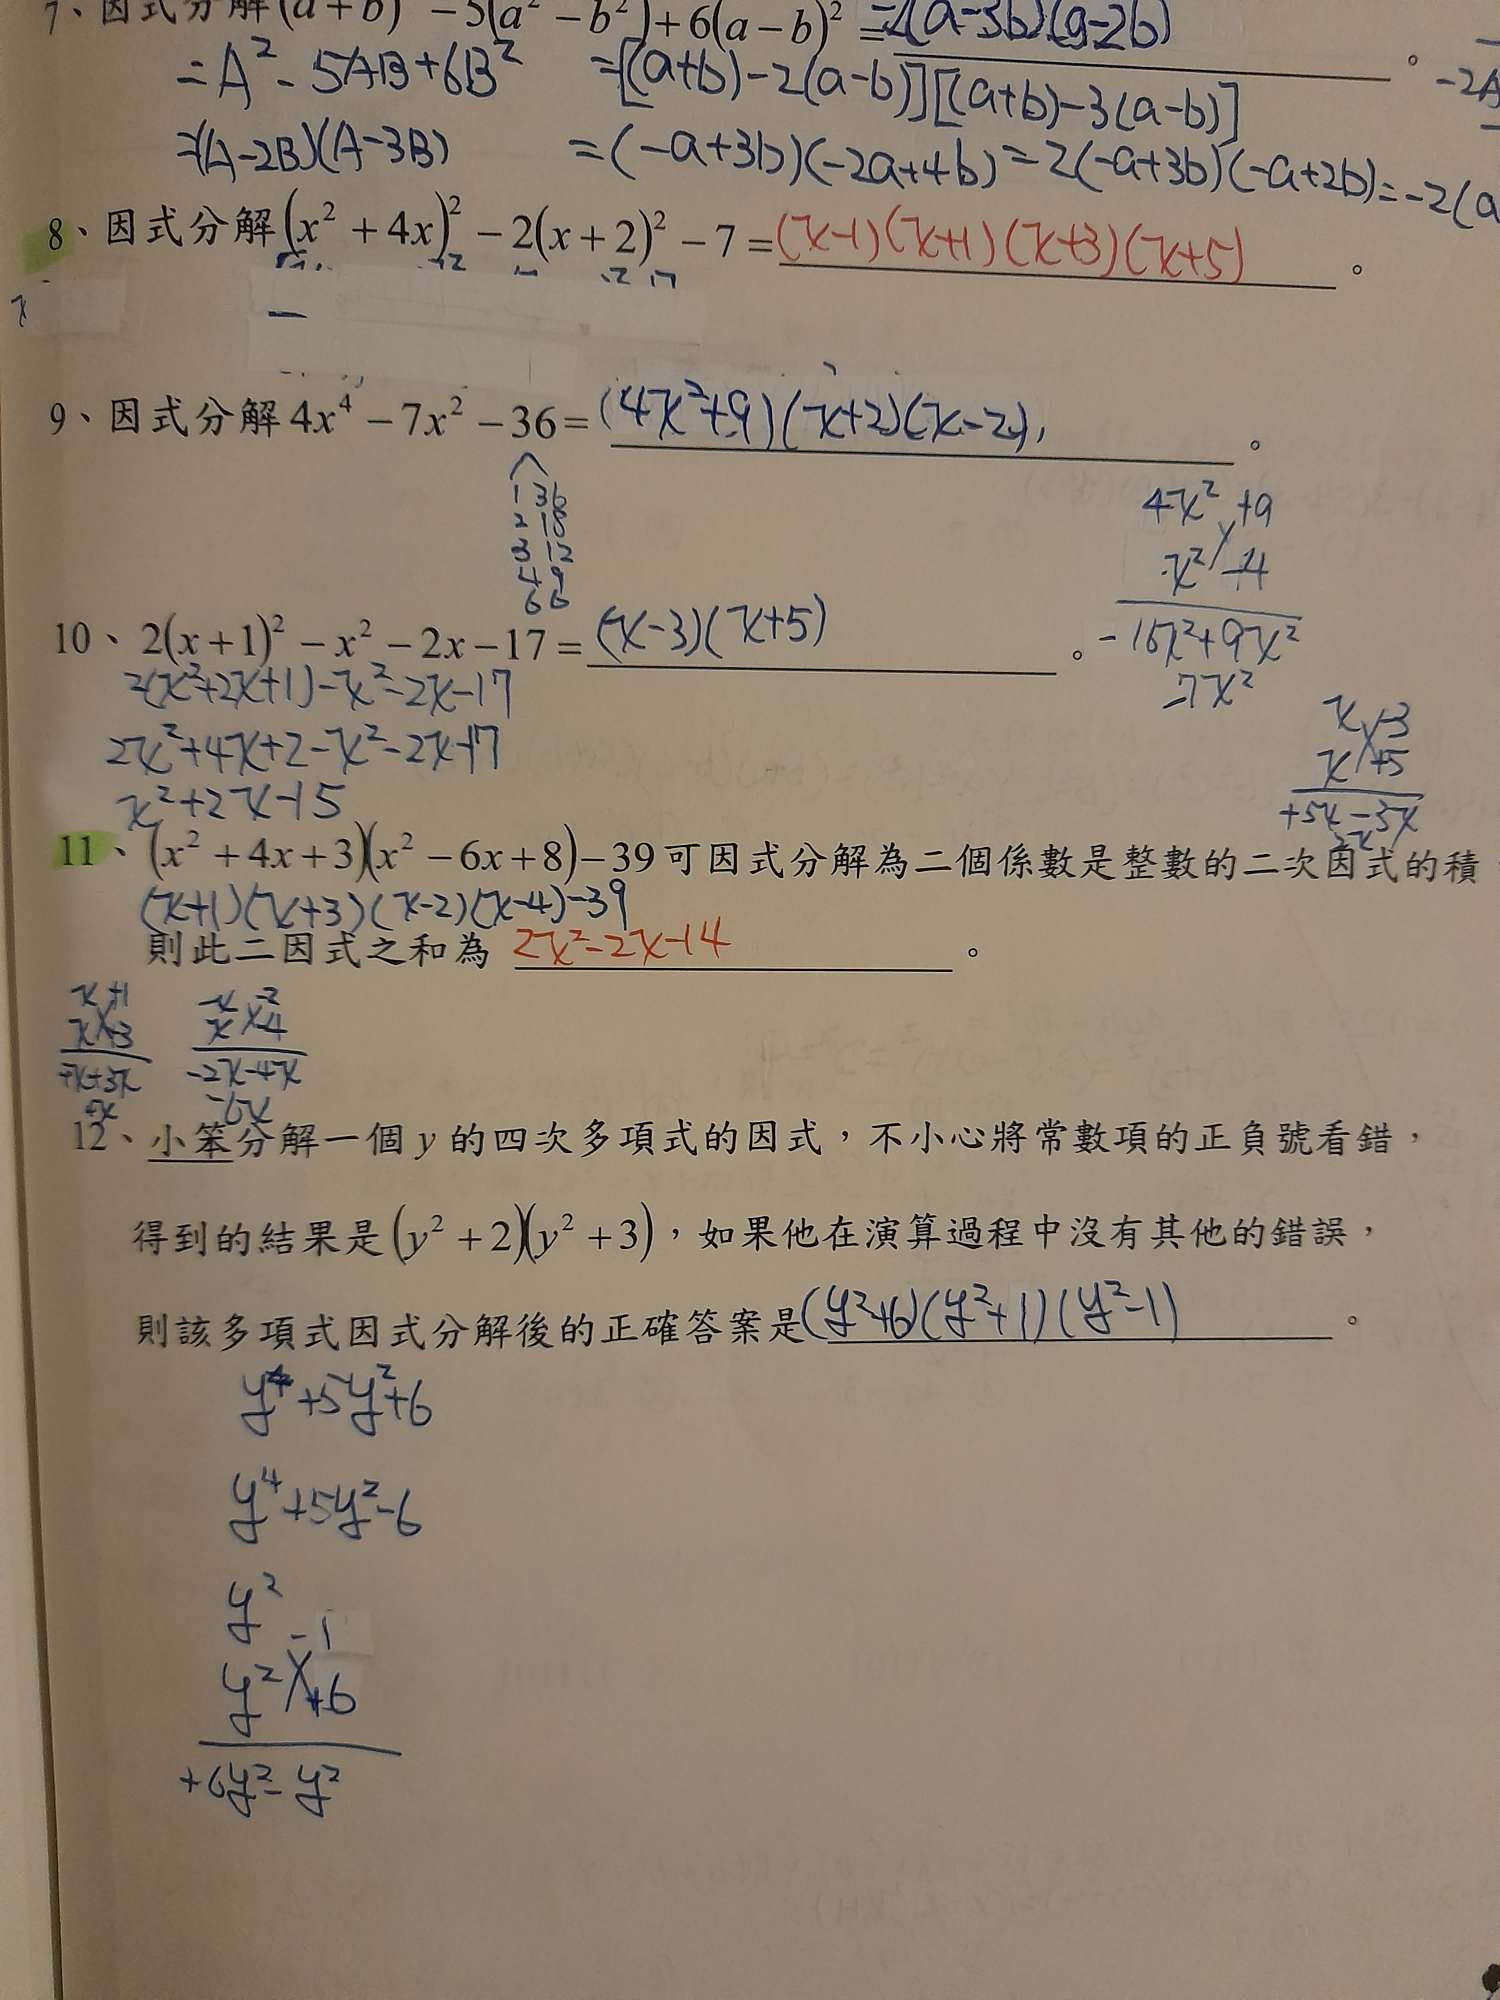 7、因式分解(a+b)² −5(a² − b²)+6(a−b)² = 2(a-3b)(a-2b)。
=A²-5AB+6B² =[(a+b)-2(a-b)][(a+b)-3(a-b)]
=(A-2B)(A-3B) =(-a+3b)(-2a+4b)=2(-a+3b)(-a+2b)=-2(a
-2A
8、因式分解(x² + 4x)² − 2(x + 2)² − 7 = (x-1)(x+1)(x+3)(x+5)。
x
9、因式分解 4x⁴ − 7x² − 36 = (4x²+9)(x+2)(x-2)。
1 36
2 18
3 12
4 9
6 6
4x² +9
x² -4
-16x²+9x²
-7x²
10、2(x+1)² − x² − 2x − 17 = (x-3)(x+5)。
2(x²+2x+1)-x²-2x-17
2x²+4x+2-x²-2x-17
x²+2x-15
x -3
x +5
+5x-3x
2x
11、(x² + 4x + 3)(x² − 6x + 8) − 39 可因式分解為二個係數是整數的二次因式的積
(x+1)(x+3)(x-2)(x-4)-39
則此二因式之和為 2x²-2x-14。
x +1
x +3
+x+3x
4x
x -2
x -4
-2x-4x
-6x
12、小笨分解一個 y 的四次多項式的因式，不小心將常數項的正負號看錯，
得到的結果是(y² + 2)(y² + 3)，如果他在演算過程中沒有其他的錯誤，
則該多項式因式分解後的正確答案是(y²+6)(y²+1)(y²-1)。
y⁴+5y²+6
y⁴+5y²-6
y² -1
y² +6
+6y²-y²